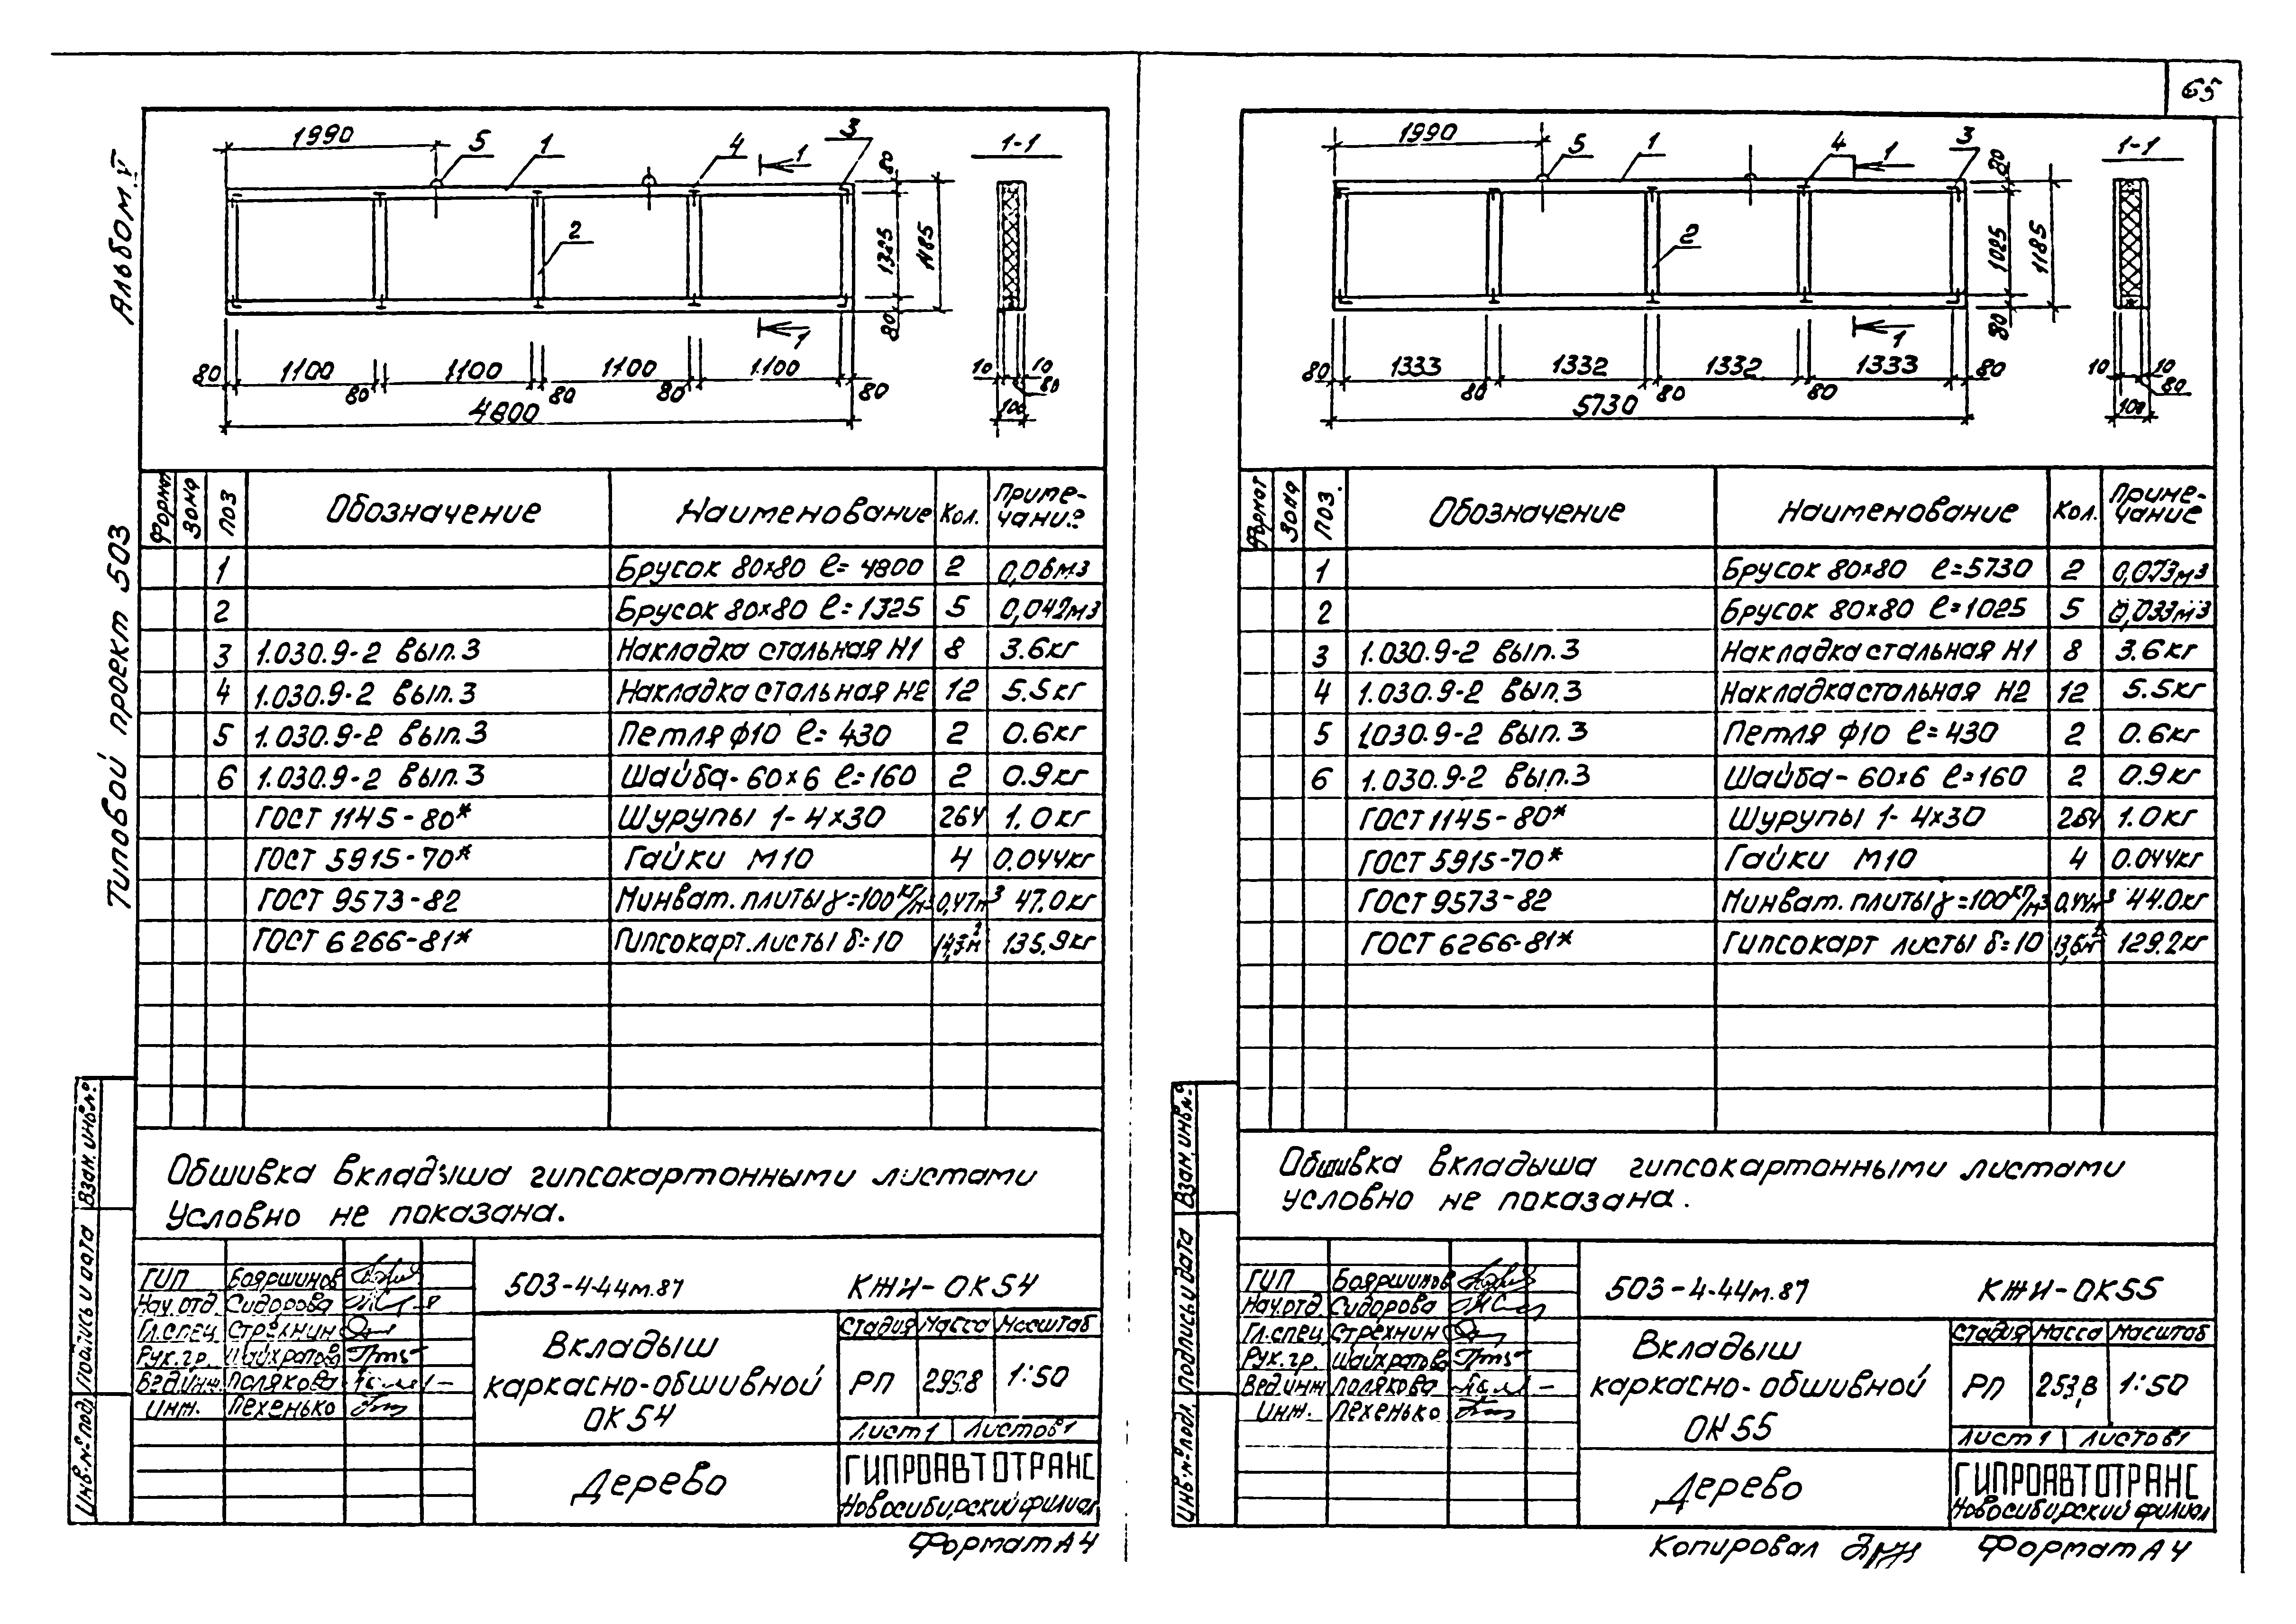 65
Альбом V
Типовой проект 503
1990
5
1
4
3
1
1-1
80
1325
1185
80
2
1
80
1100
80
1100
80
1100
80
1100
80
4800
10
10
80
100
Формат Зона Поз Обозначение Наименование Кол. Примечание
1 Брусок 80х80 ℓ=4800 2 0,06м3
2 Брусок 80х80 ℓ=1325 5 0,042м3
3 1.030.9-2 вып.3 Накладка стальная Н1 8 3.6кг
4 1.030.9-2 вып.3 Накладка стальная Н2 12 5.5кг
5 1.030.9-2 вып.3 Петля ф10 ℓ=430 2 0.6кг
6 1.030.9-2 вып.3 Шайба-60х6 ℓ=160 2 0.9кг
ГОСТ 1145-80* Шурупы 1-4х30 264 1.0кг
ГОСТ 5915-70* Гайки М10 4 0.044кг
ГОСТ 9573-82 Минват. плиты γ=100кг/м3 0,47м3 47.0кг
ГОСТ 6266-81* Гипсокарт. листы δ=10 14,3м2 135.9кг
Обшивка вкладыша гипсокартонными листами
условно не показана.
Взам. инв.№
Подпись и дата
Инв.№ подл.
ГИП Бояршинов
Нач.отд. Сидорова
Гл.спец. Стрехнин
Рук.гр. Шайхратова
Вед.инж. Полякова
Инж. Пехенько
503-4-44м.87 КЖИ-ОК54
Вкладыш
каркасно-обшивной
ОК54
Стадия Масса Масштаб
РП 1:50
Лист 1 Листов 1
Дерево
ГИПРОАВТОТРАНС
Новосибирский филиал
Формат А4
1990
5
1
4
1
3
1-1
80
1025
1185
80
2
1
80
1333
80
1332
80
1332
80
1333
80
5730
10
10
80
100
Формат Зона Поз. Обозначение Наименование Кол. Примечание
1 Брусок 80х80 ℓ=5730 2 0,073м3
2 Брусок 80х80 ℓ=1025 5 0,033м3
3 1.030.9-2 вып.3 Накладка стальная Н1 8 3.6кг
4 1.030.9-2 вып.3 Накладка стальная Н2 12 5.5кг
5 1.030.9-2 вып.3 Петля ф10 ℓ=430 2 0.6кг
6 1.030.9-2 вып.3 Шайба-60х6 ℓ=160 2 0.9кг
ГОСТ 1145-80* Шурупы 1-4х30 264 1.0кг
ГОСТ 5915-70* Гайки М10 4 0.044кг
ГОСТ 9573-82 Минват. плиты γ=100кг/м3 0.44м3 44.0кг
ГОСТ 6266-81* Гипсокарт листы δ=10 13,6м2 129.2кг
Обшивка вкладыша гипсокартонными листами
условно не показана.
Взам. инв.№
Подпись и дата
Инв.№ подл.
ГИП Бояршинов
Нач.отд. Сидорова
Гл.спец. Стрехнин
Рук.гр. Шайхратова
Вед.инж Полякова
Инж. Пехенько
503-4-44м.87 КЖИ-ОК55
Вкладыш
каркасно-обшивной
ОК55
Стадия Масса Масштаб
РП 253,8 1:50
Лист 1 Листов 1
Дерево
ГИПРОАВТОТРАНС
Новосибирский филиал
Копировал
Формат А4